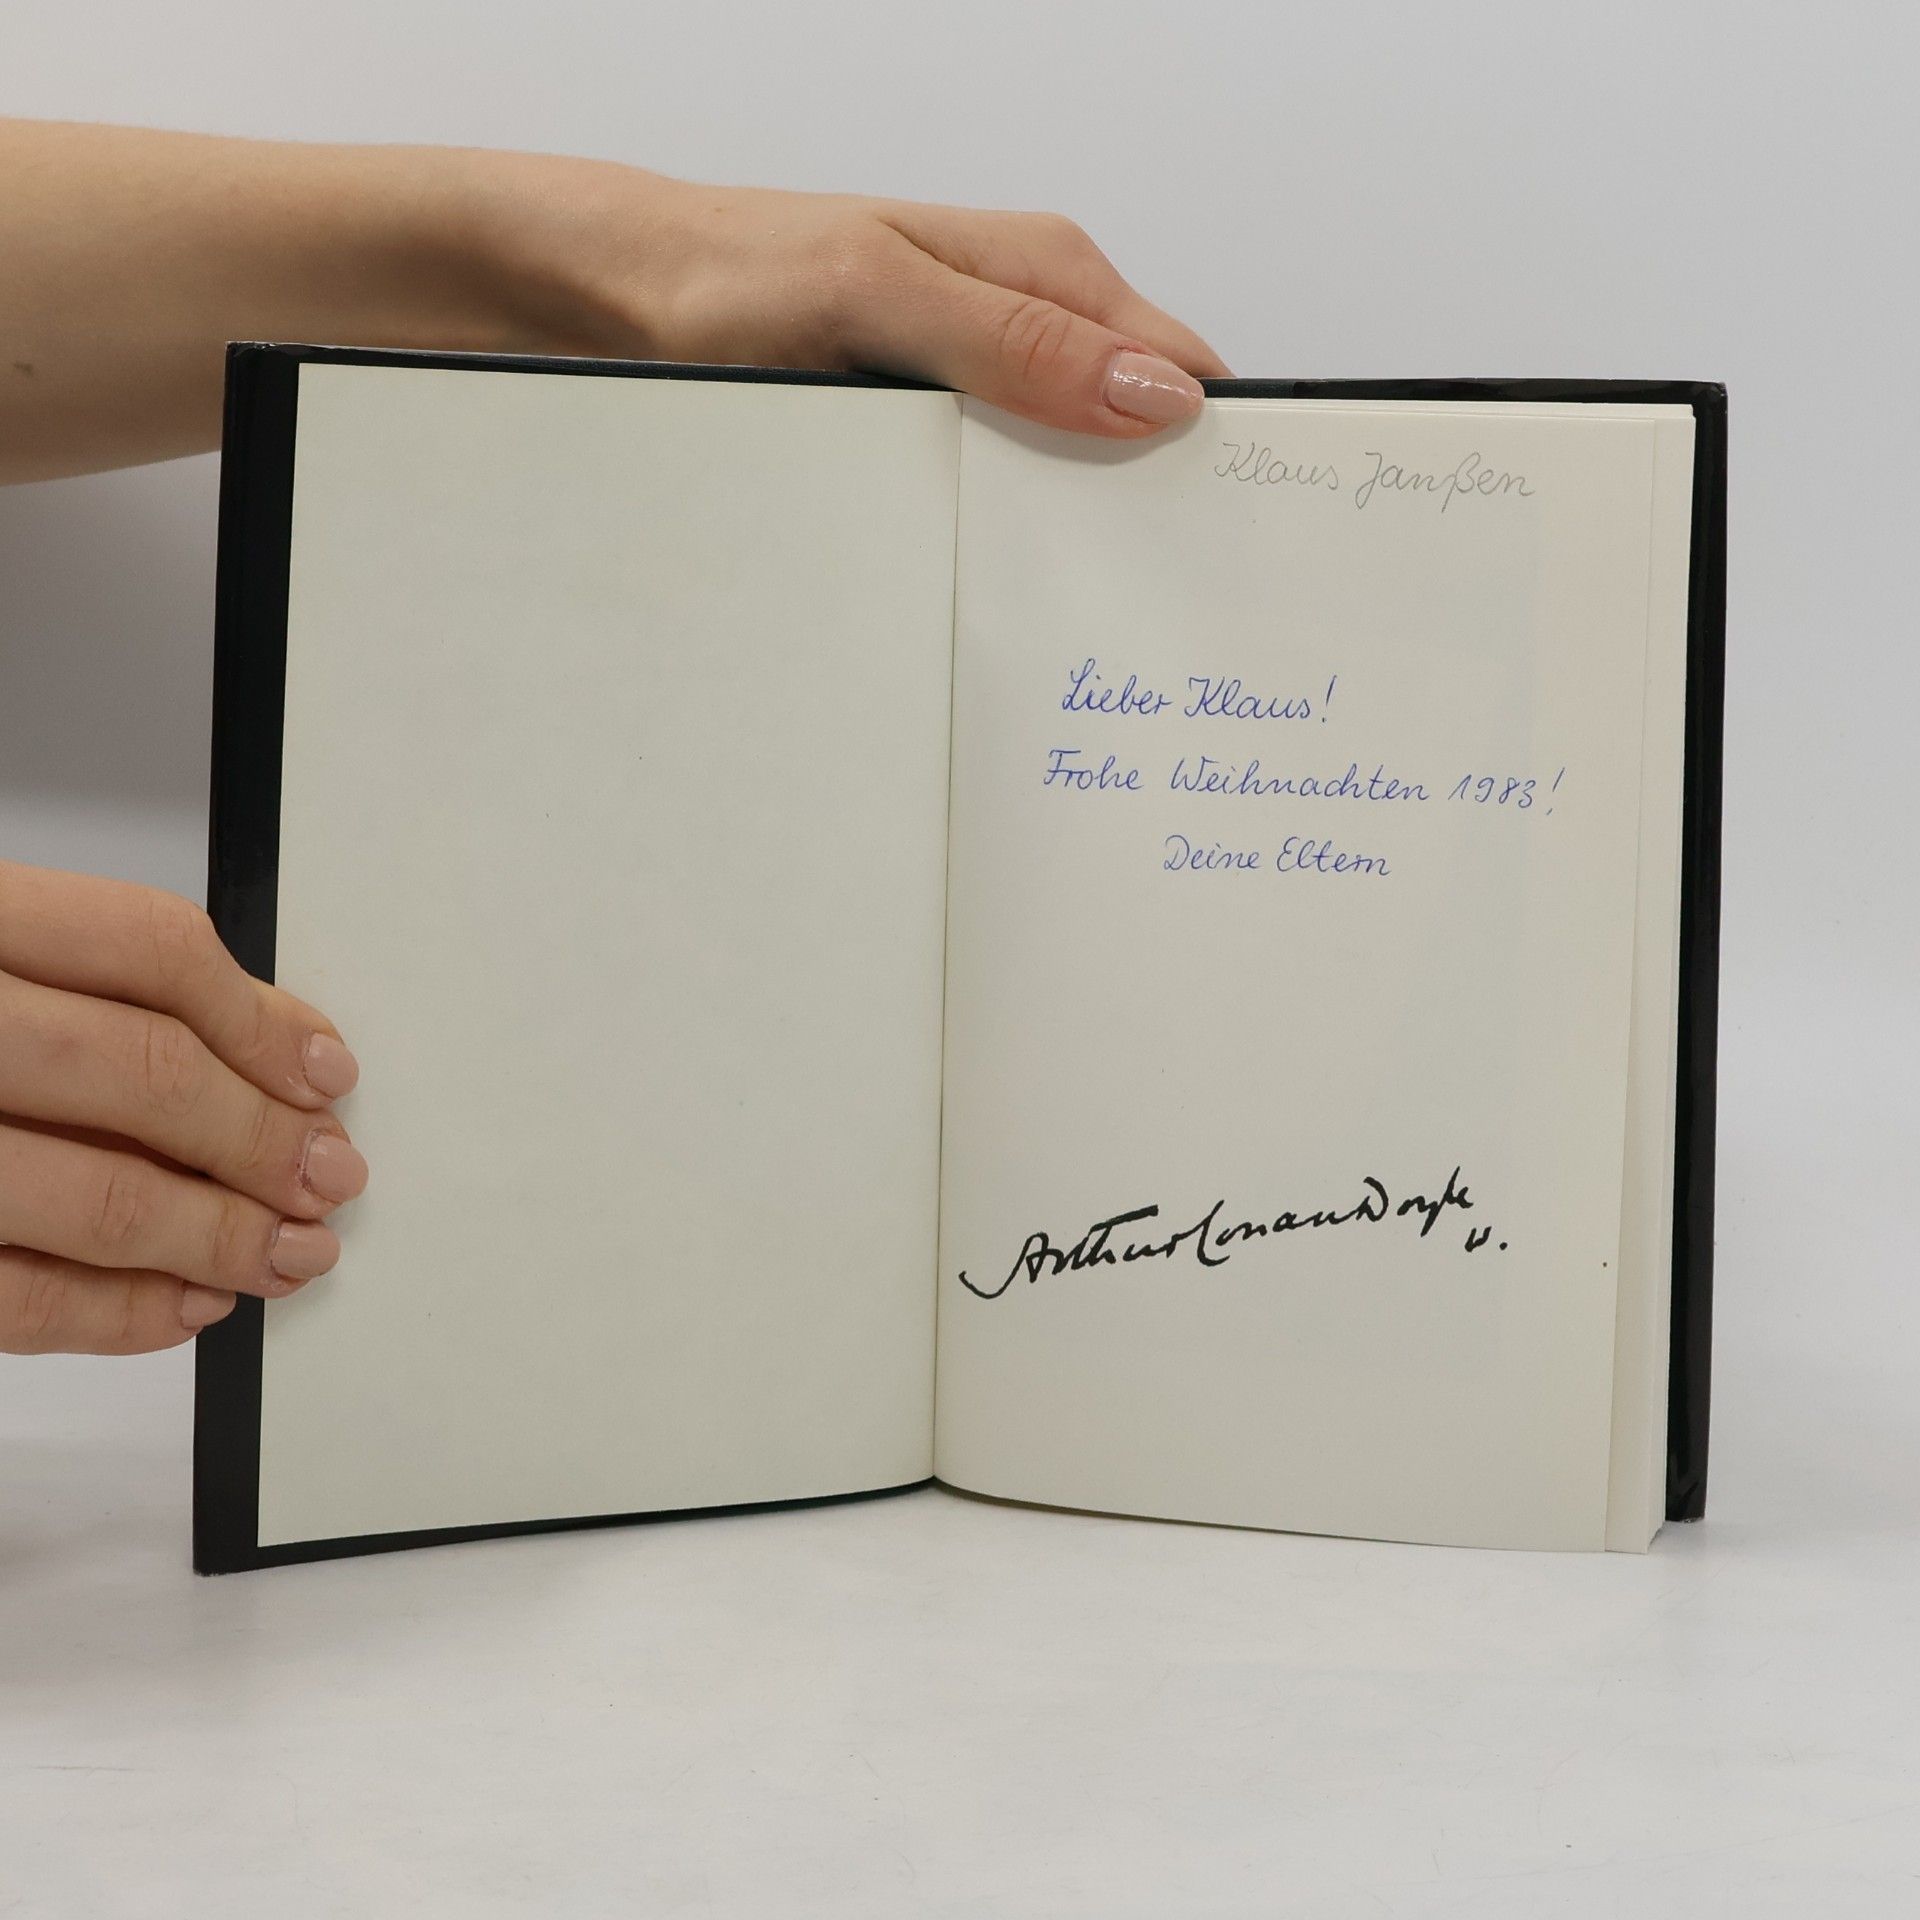 Klaus Janßen
Lieber Klaus!
Frohe Weihnachten 1983!
Deine Eltern
Arthur Conan Doyle